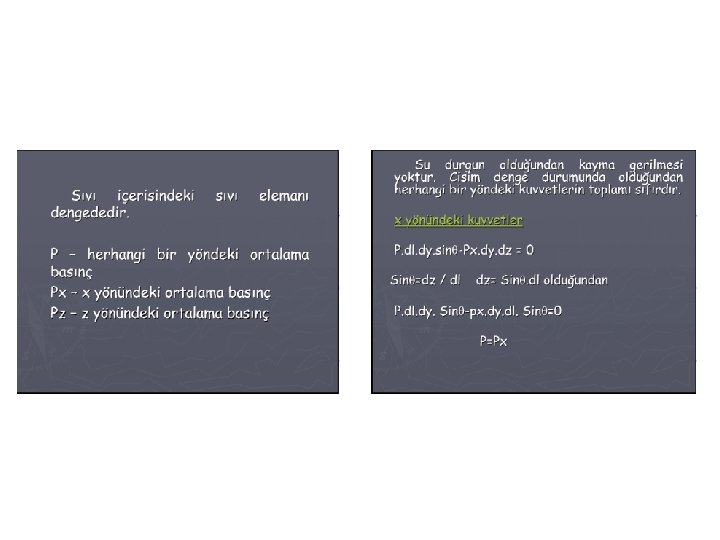 Sıvı içerisindeki sıvı elemanı
dengededir.
P – herhangi bir yöndeki ortalama
basınç
Px – x yönündeki ortalama basınç
Pz – z yönündeki ortalama basınç
Su durgun olduğundan kayma gerilmesi
yoktur. Cisim denge durumunda olduğundan
herhangi bir yöndeki kuvvetlerin toplamı sıfırdır.
x yönündeki kuvvetler
P.dl.dy.sinθ-Px.dy.dz = 0
Sinθ=dz / dl dz= Sinθ.dl olduğundan
P.dl.dy. Sinθ-px.dy.dl. Sinθ=0
P=Px